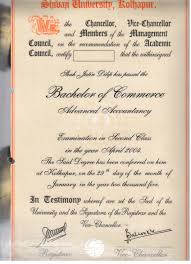 Shivaji University, Kolhapur.
We, the Chancellor, Vice-Chancellor
and Members of the Management
Council, on the recommendation of the Academic
Council, certify that the undersigned
Shah Jatin Dilip has passed the
Bachelor of Commerce
Advanced Accountancy
Examination in Second Class
in the year April 2004
The Said Degree has been conferred on him
at Kolhapur, on the 29th day of the month of
January in the year two thousand five.
In Testimony whereof are set the Seal of the
University and the Signatures of the Registrar and the
Vice-Chancellor.
Registrar
Vice-Chancellor